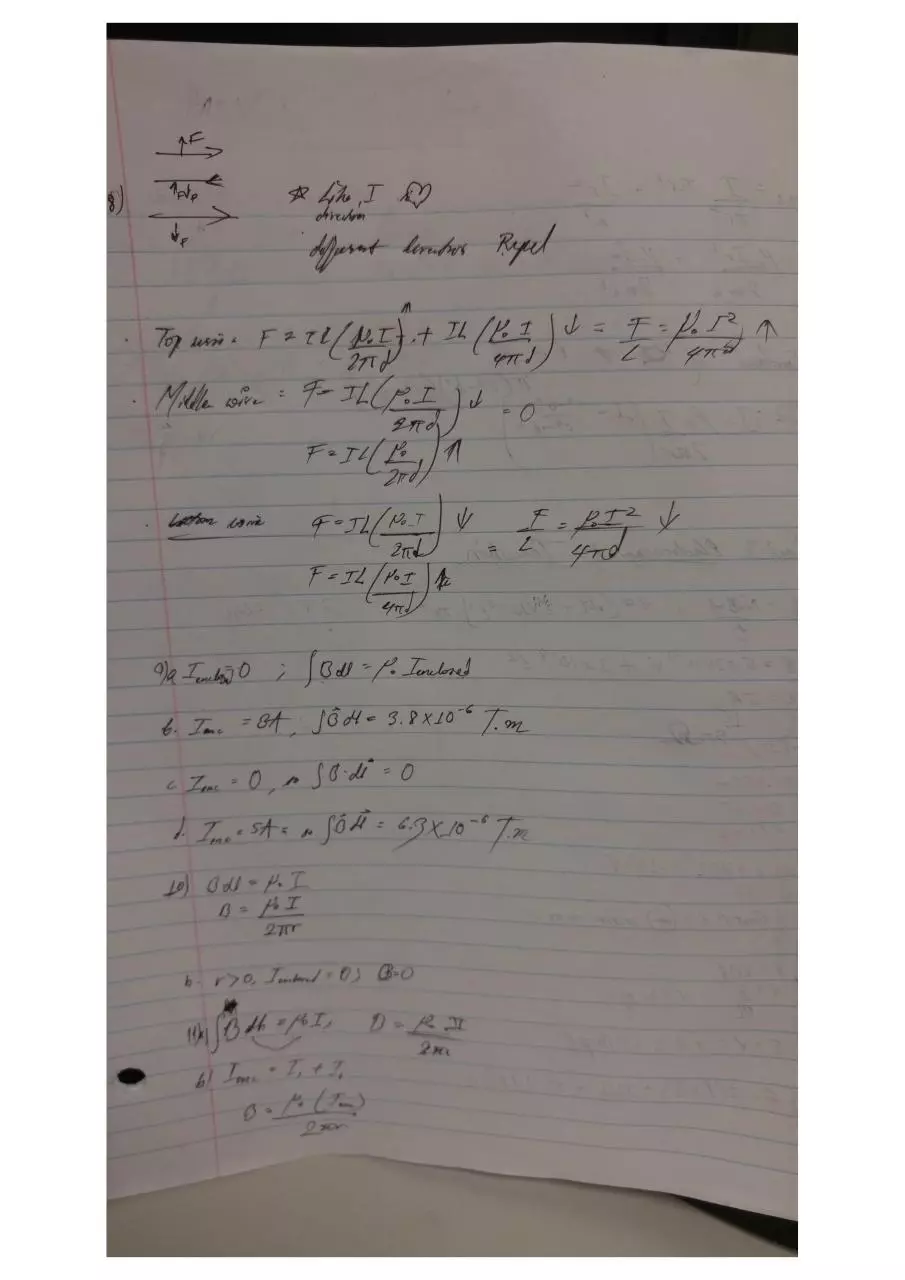 ↑F
↑F↓F
8)
↓F
☆ Like I ♡
direction
different directions Repel
. Top wire: F = IL(μ₀I/2πd)↑ + IL(μ₀I/4πd)↓ = F/L = μ₀I²/4πd ↑
. Middle wire : F = IL(μ₀I/2πd)↓ = 0
F = IL(μ₀/2πd)↑
. wire F = IL(μ₀I/2πd)↓ = F/L = μ₀I²/4πd ↓
F = IL(μ₀I/4πd)↑
9)a I enclosed=0 ; ∫Bdl = μ₀ Ienclosed
b. Ienc = 3A, ∫B⃗dl = 3.8×10⁻⁶ T.m
c Ienc = 0, so ∫B·dl⃗ = 0
d. Ienc = 5A = so ∫B⃗dl⃗ = 6.3×10⁻⁶ T.m
10) Bdl = μ₀ I
B = μ₀I/2πr
b. r>0, I = 0; B=0
11)a) ∫B = μ₀I, B = μ₀ I/2πr
b) Ienc = I₁ + I₁
B = μ₀(Ienc)/2πr